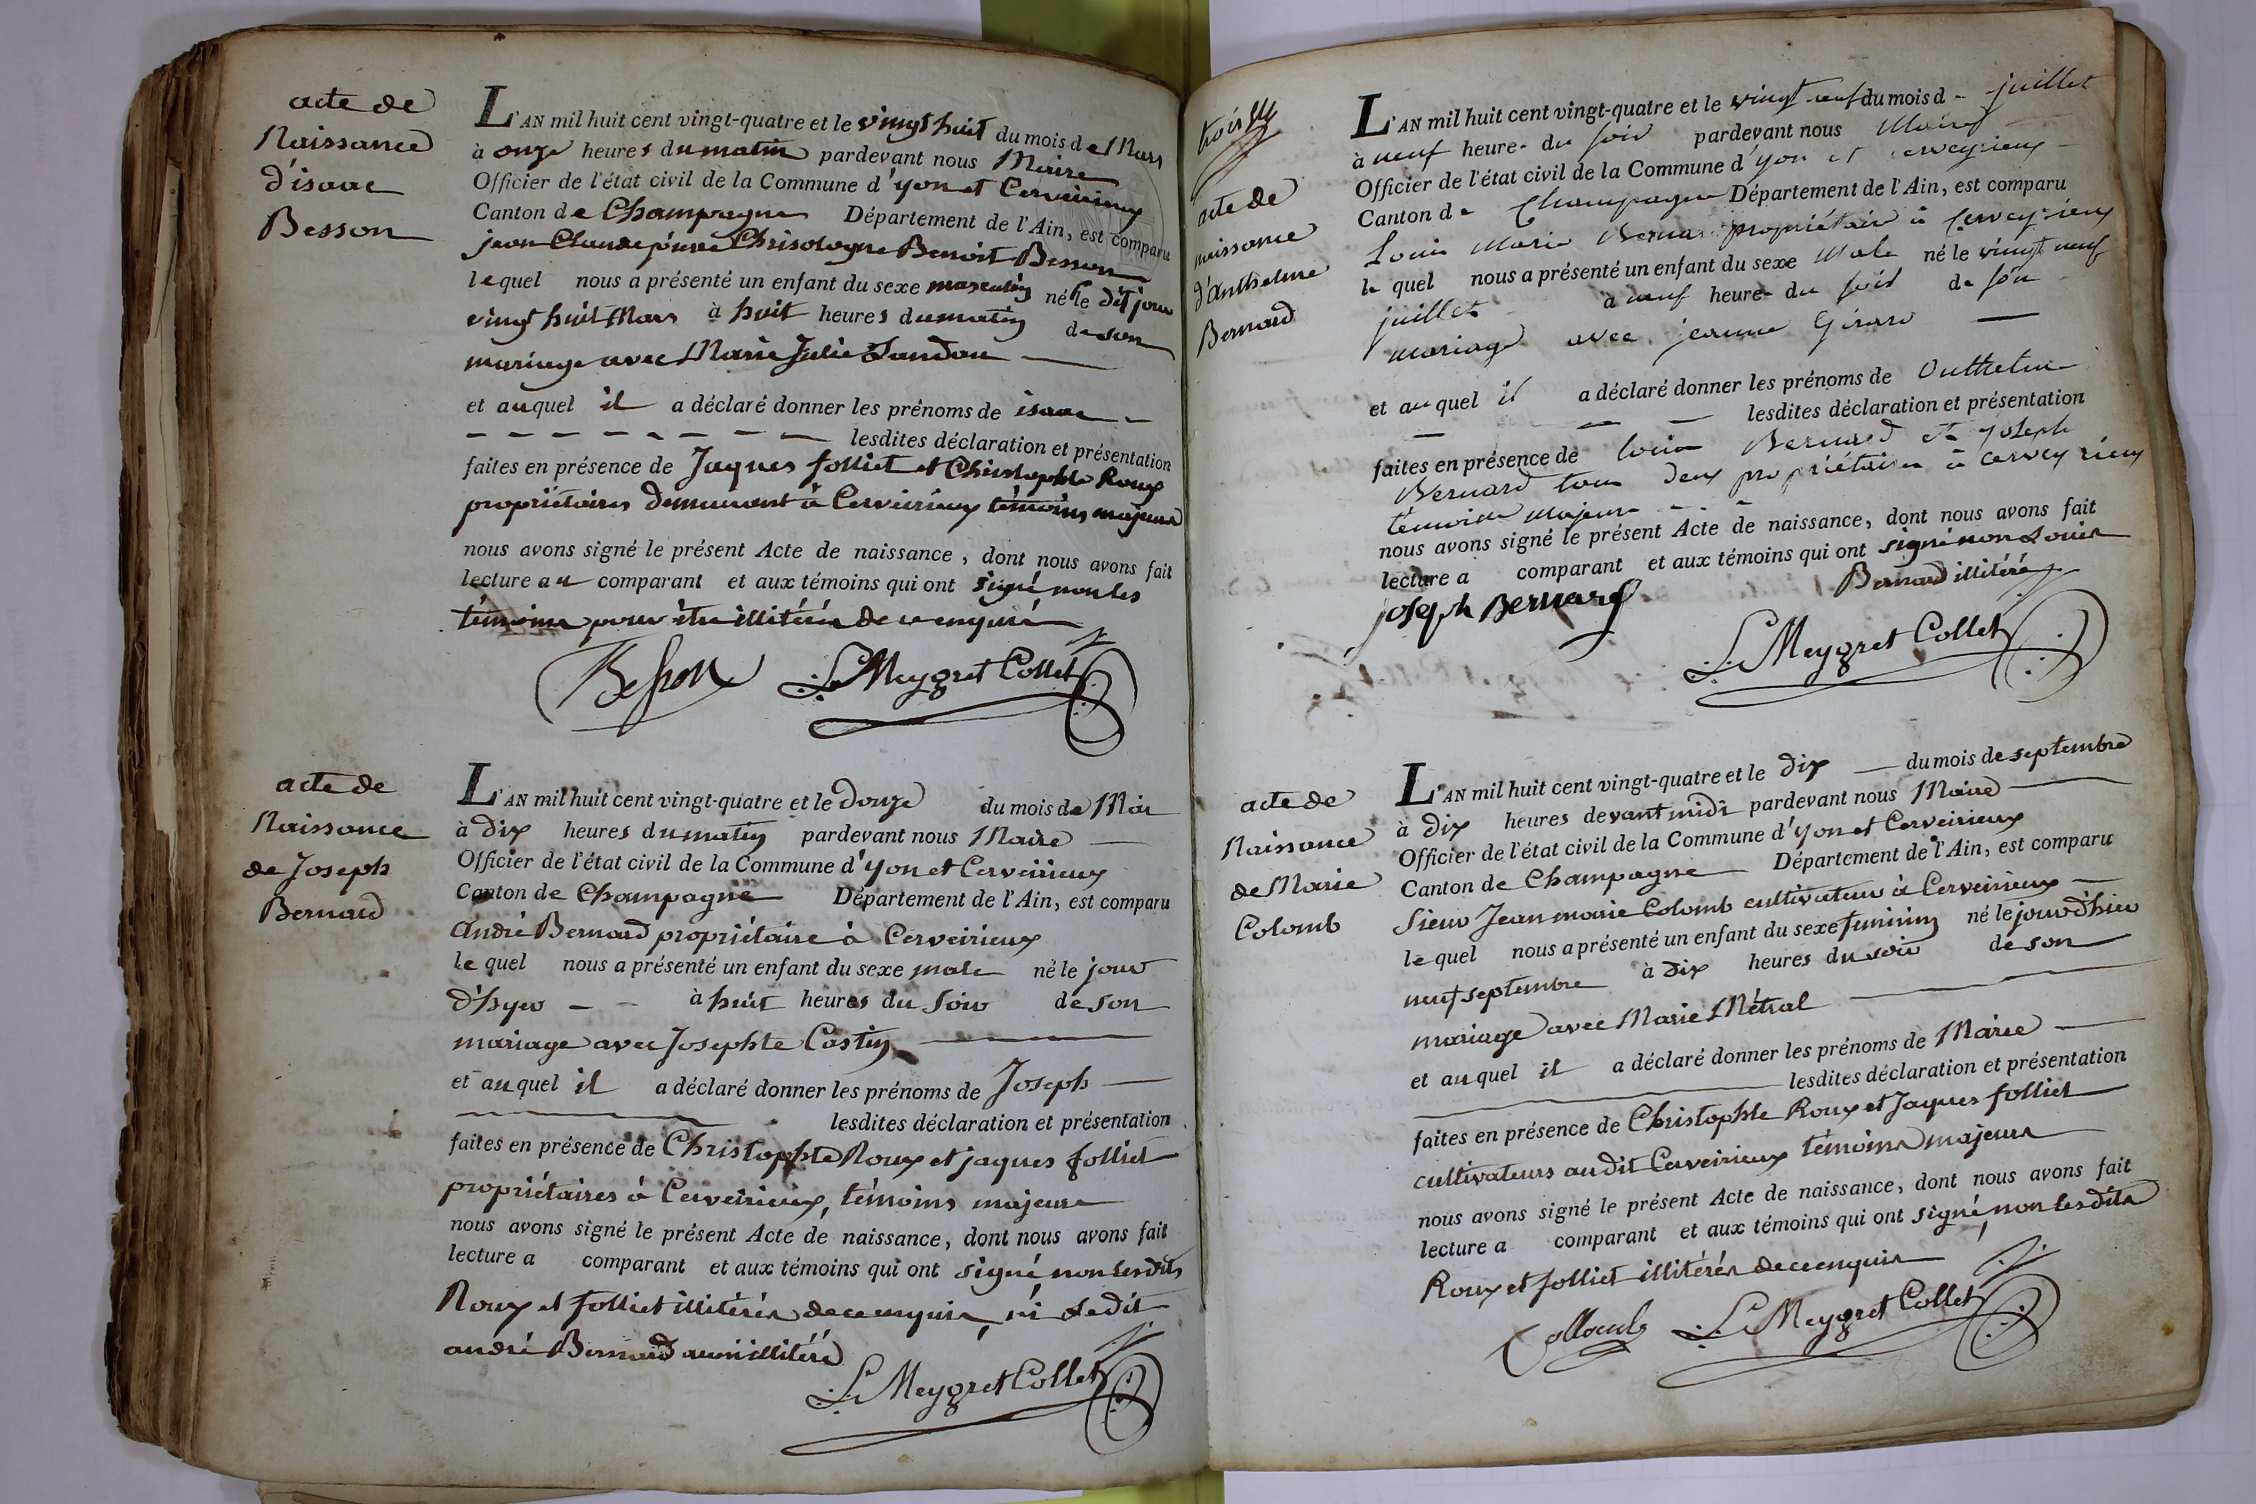 acte de
Naissance
d'isaac
Besson
L'AN mil huit cent vingt-quatre et le vingt huit du mois de Mars
à onze heures du matin pardevant nous Maire
Officier de l'état civil de la Commune d'yon et Cerveirieux
Canton de Champagne Département de l'Ain, est comparu
jean Claude pierre Chrisologne Benoit Besson
lequel nous a présenté un enfant du sexe masculin né le dit jour
vingt huit Mars à huit heures du matin de son
mariage avec Marie Julie
et auquel il a déclaré donner les prénoms de isaac
lesdites déclaration et présentation
faites en présence de Jaques folliet et Christophle Roux
propriétaires demeurant à Cerveirieux témoins majeurs
nous avons signé le présent Acte de naissance, dont nous avons fait
lecture au comparant et aux témoins qui ont signé non les
témoins pour être illitérés de ce enquis
Besson LMeygret Collet
acte de
Naissance
de Joseph
Bernard
L'AN mil huit cent vingt-quatre et le douze du mois de Mai
à dix heures du matin pardevant nous Maire
Officier de l'état civil de la Commune d'yon et Cerveirieux
Canton de Champagne Département de l'Ain, est comparu
André Bernard propriétaire à Cerveirieux
lequel nous a présenté un enfant du sexe male né le jour
d'hyer à huit heures du soir de son
mariage avec Josephte Costin
et auquel il a déclaré donner les prénoms de Joseph
lesdites déclaration et présentation
faites en présence de Christophle Roux et jaques folliet
propriétaires à Cerveirieux, témoins majeurs
nous avons signé le présent Acte de naissance, dont nous avons fait
lecture a comparant et aux témoins qui ont signé non lesdits
Roux et folliet illitérés de ce enquis, ni ledit
andré Bernard aussi illitéré
LMeygret Collet
trois
acte de
naissance
d'Anthelme
Bernard
L'AN mil huit cent vingt-quatre et le vingt neuf du mois d juillet
à neuf heure du soir pardevant nous Maire
Officier de l'état civil de la Commune d'yon et cerveyrieux
Canton de Champagne Département de l'Ain, est comparu
Louis Marie Bernard propriétaire à Cerveyrieux
le quel nous a présenté un enfant du sexe Male né le vingt neuf
juillet à neuf heure du soir de son
mariage avec jeanne Girard
et auquel il a déclaré donner les prénoms de Anthelme
lesdites déclaration et présentation
faites en présence de louis Bernard et joseph
Bernard tous deux propriétaires à cerveyrieux
témoins majeurs
nous avons signé le présent Acte de naissance, dont nous avons fait
lecture a comparant et aux témoins qui ont signé non Louis
Bernard illitéré
joseph Bernard
LMeygret Collet
acte de
Naissance
de Marie
Colomb
L'AN mil huit cent vingt-quatre et le dix du mois de septembre
à dix heures devant midi pardevant nous Maire
Officier de l'état civil de la Commune d'yon et Cerveirieux
Canton de Champagne Département de l'Ain, est comparu
Sieur Jean marie Colomb cultivateur à Cerveirieux
lequel nous a présenté un enfant du sexe feminin né le jour d'hier
neuf septembre à dix heures du soir de son
mariage avec Marie Métral
et auquel il a déclaré donner les prénoms de Marie
lesdites déclaration et présentation
faites en présence de Christophle Roux et Jaques folliet
cultivateurs audit Cerveirieux témoins majeurs
nous avons signé le présent Acte de naissance, dont nous avons fait
lecture a comparant et aux témoins qui ont signé, non lesdits
Roux et folliet illitérés de ce enquis
Colomb LMeygret Collet